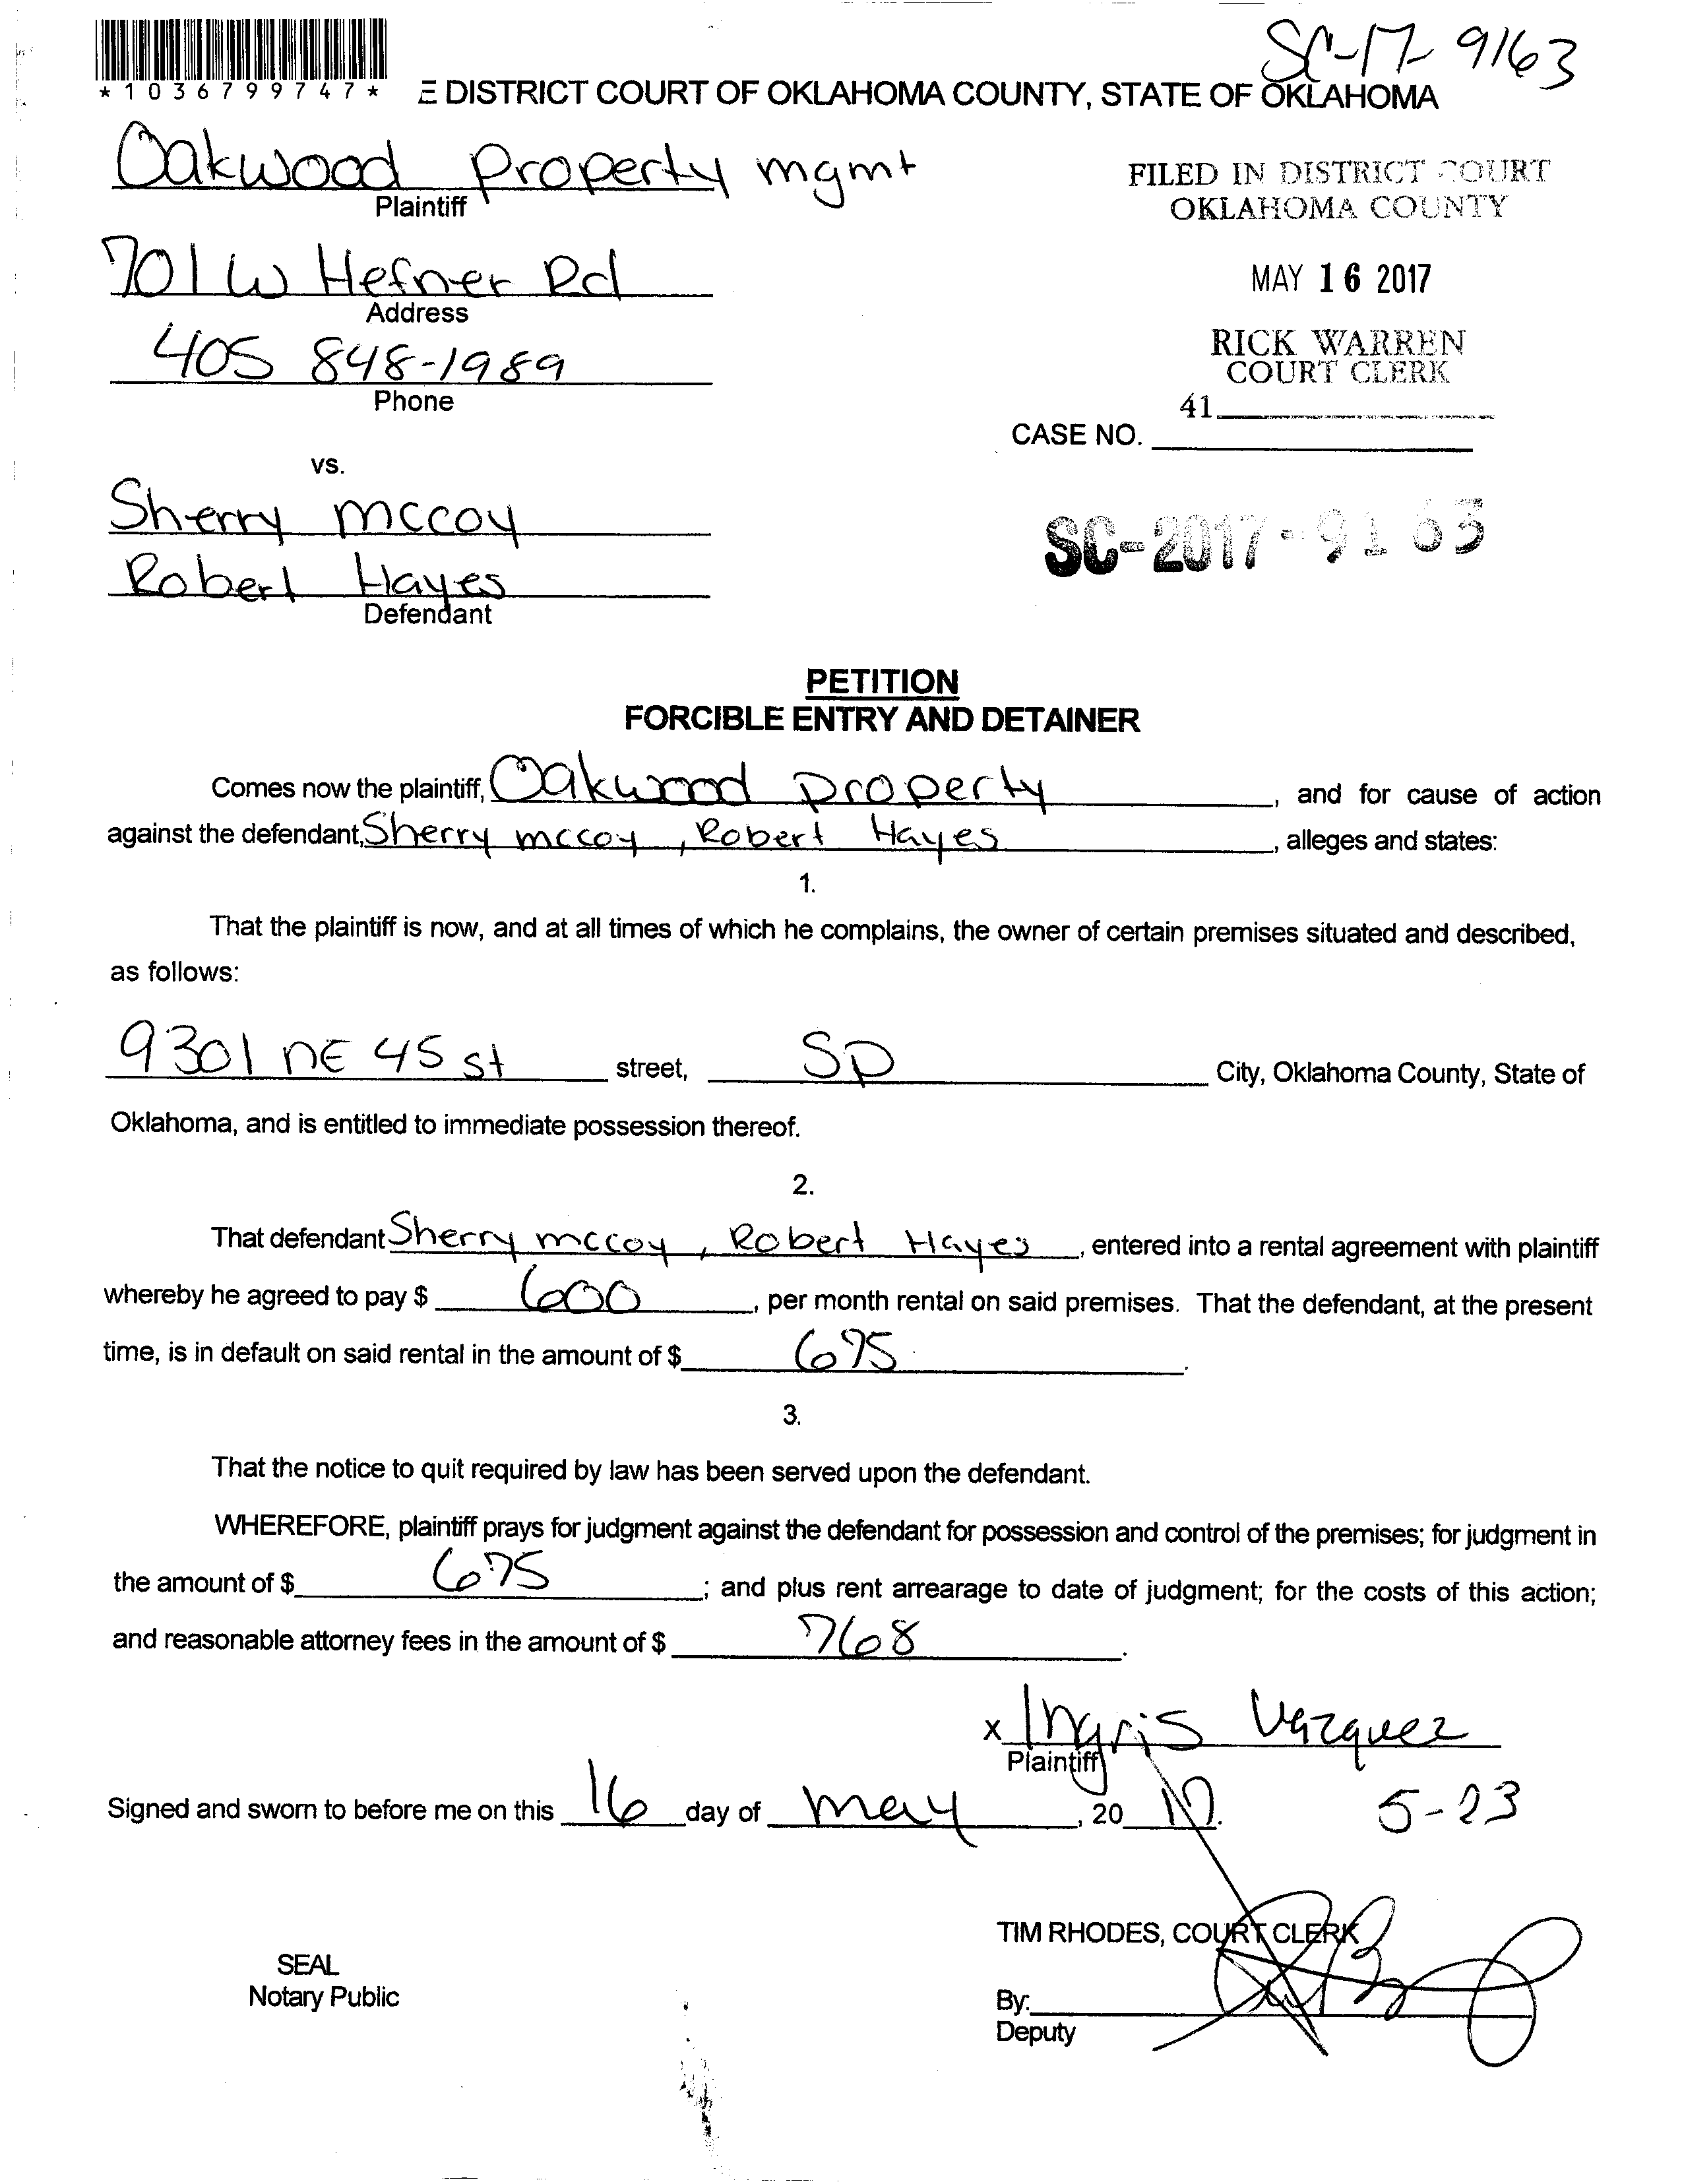 SC-17-9163
*1036799747*
E DISTRICT COURT OF OKLAHOMA COUNTY, STATE OF OKLAHOMA
Oakwood Property mgmt
Plaintiff
FILED IN DISTRICT COURT
OKLAHOMA COUNTY
701 W Hefner Rd
Address
MAY 16 2017
405 848-1989
Phone
RICK WARREN
COURT CLERK
41
CASE NO.
vs.
Sherry mccoy
SC-2017-9163
Robert Hayes
Defendant
PETITION
FORCIBLE ENTRY AND DETAINER
Comes now the plaintiff, Oakwood property, and for cause of action
against the defendant, Sherry mccoy, Robert Hayes, alleges and states:
1.
That the plaintiff is now, and at all times of which he complains, the owner of certain premises situated and described,
as follows:
9301 NE 45 st street, SP City, Oklahoma County, State of
Oklahoma, and is entitled to immediate possession thereof.
2.
That defendant Sherry mccoy, Robert Hayes, entered into a rental agreement with plaintiff
whereby he agreed to pay $ 600, per month rental on said premises. That the defendant, at the present
time, is in default on said rental in the amount of $ 675.
3.
That the notice to quit required by law has been served upon the defendant.
WHEREFORE, plaintiff prays for judgment against the defendant for possession and control of the premises; for judgment in
the amount of $ 675; and plus rent arrearage to date of judgment; for the costs of this action;
and reasonable attorney fees in the amount of $ 768.
x Ingris Vazquez
Plaintiff
Signed and sworn to before me on this 16 day of may, 20 17.
5-23
TIM RHODES, COURT CLERK
SEAL
Notary Public
By:
Deputy